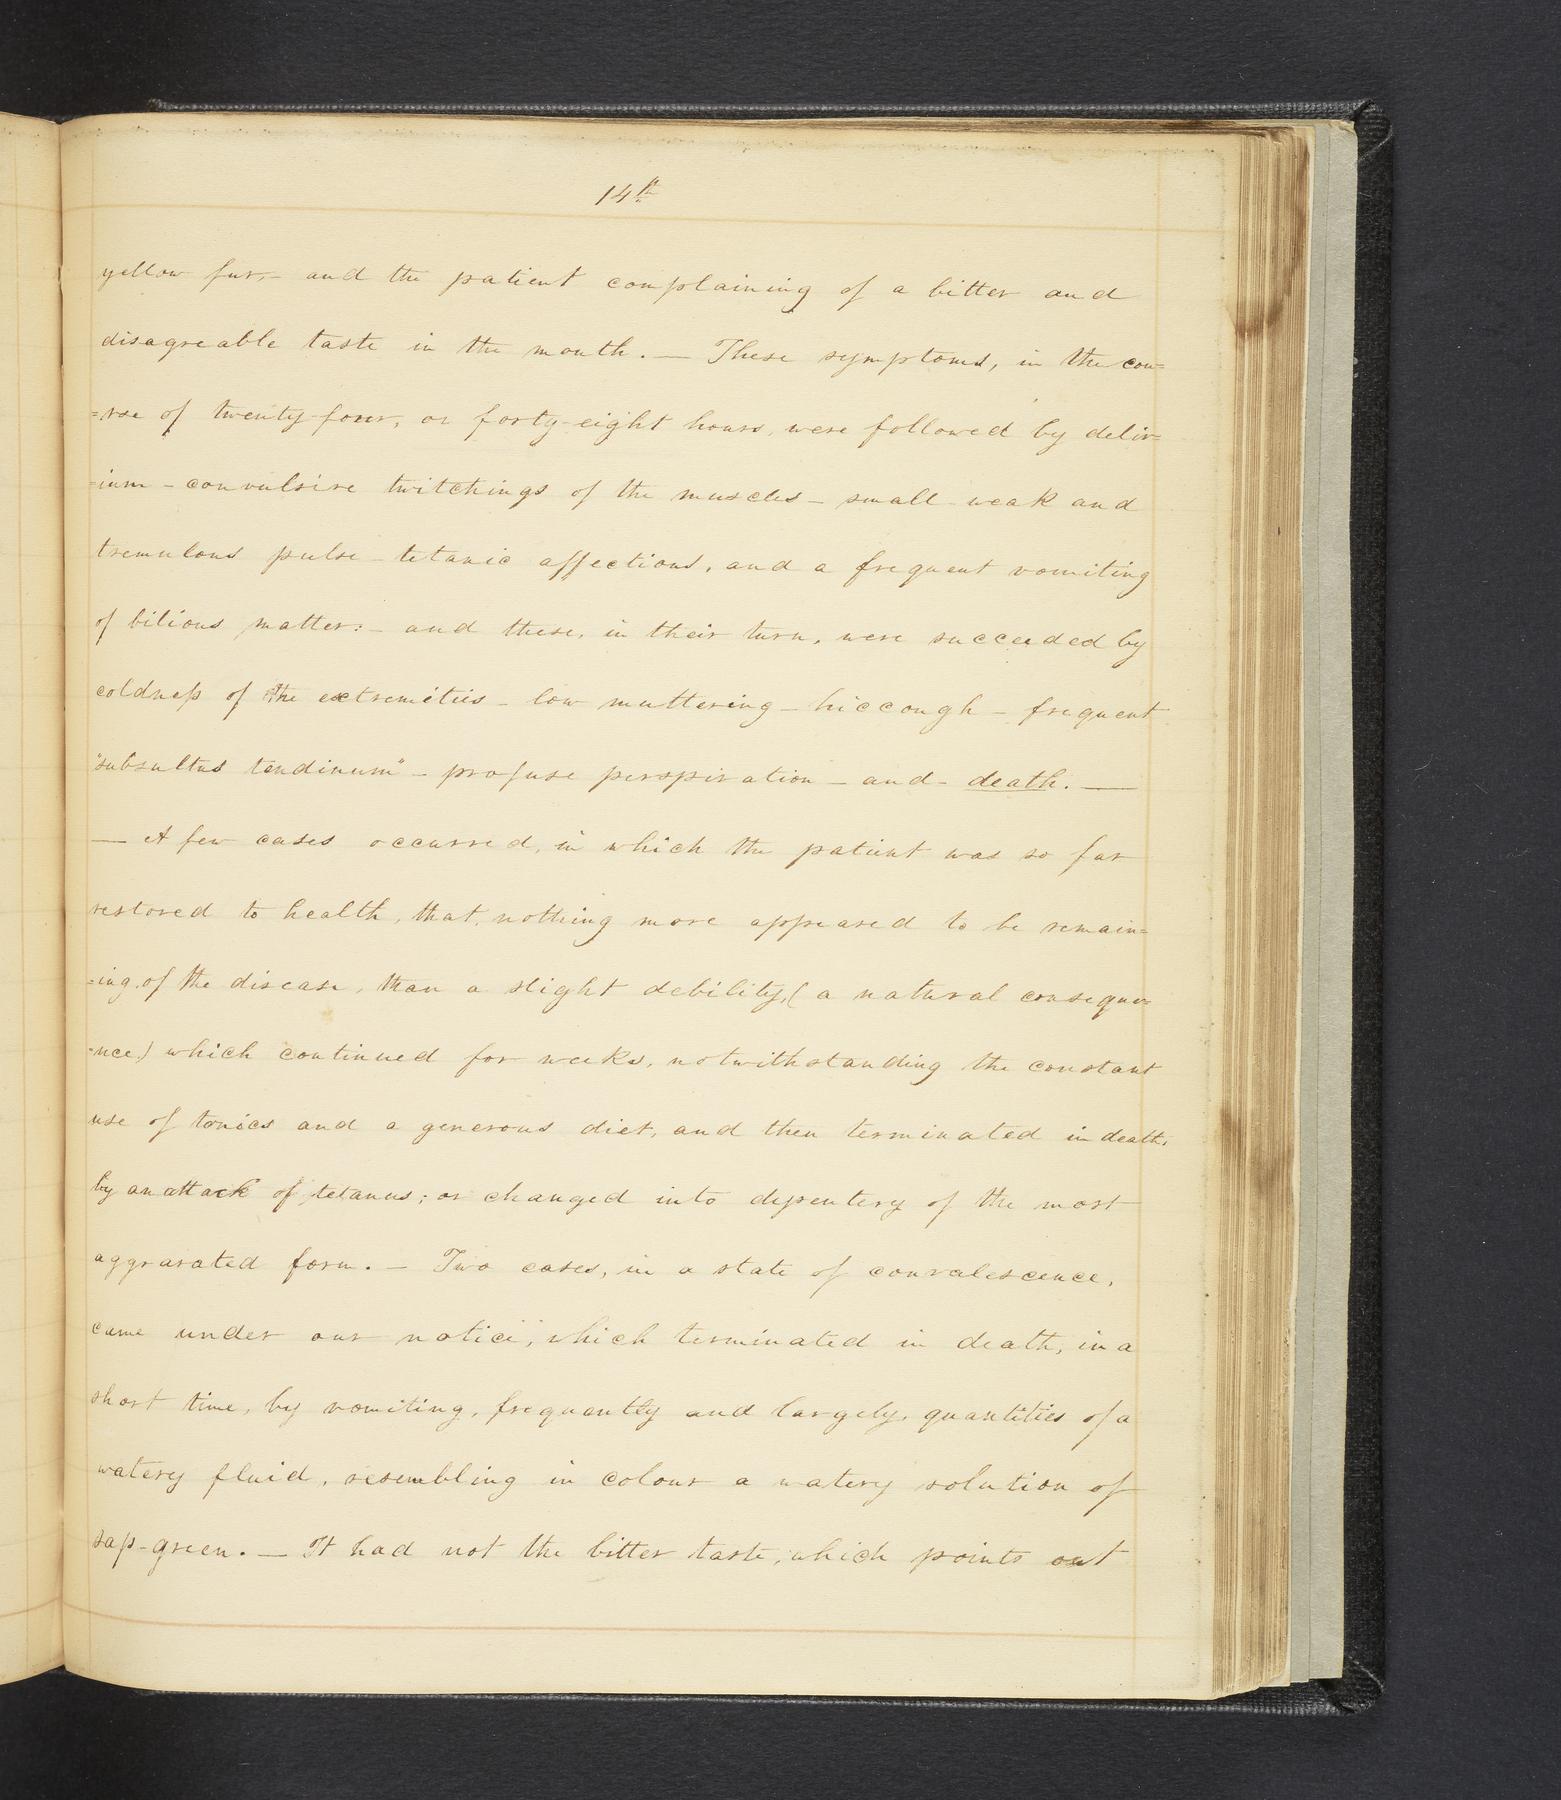 14th
yellow fur,- and the patient complaining of a bitter and
disagreable taste in the mouth. — These symptoms, in the cou=
=rse of twenty-four, or forty-eight hours, were followed by delir=
=ium - convulsive twitchings of the muscles - small weak and
tremulous pulse - tetanic affections, and a frequent vomiting
of bilious matter: - and these, in their turn, were succeeded by
coldness of the extremities - low muttering - hiccough - frequent
"subsultus tendinum" - profuse perspiration - and - death. —
— A few cases occurred, in which the patient was so far
restored to health, that, nothing more appeared to be remain=
=ing, of the disease, than a slight debility, (a natural conseque=
=nce) which continued for weeks, notwithstanding the constant
use of tonics and a generous diet, and then terminated in death,
by an attack of tetanus; or changed into dysentery of the most
aggravated form. - Two cases, in a state of convalescence,
came under our notice, which terminated in death, in a
short time, by vomiting, frequently and largely, quantities of a
watery fluid, resembling in colour a watery solution of
sap-green. — It had not the bitter taste, which points out